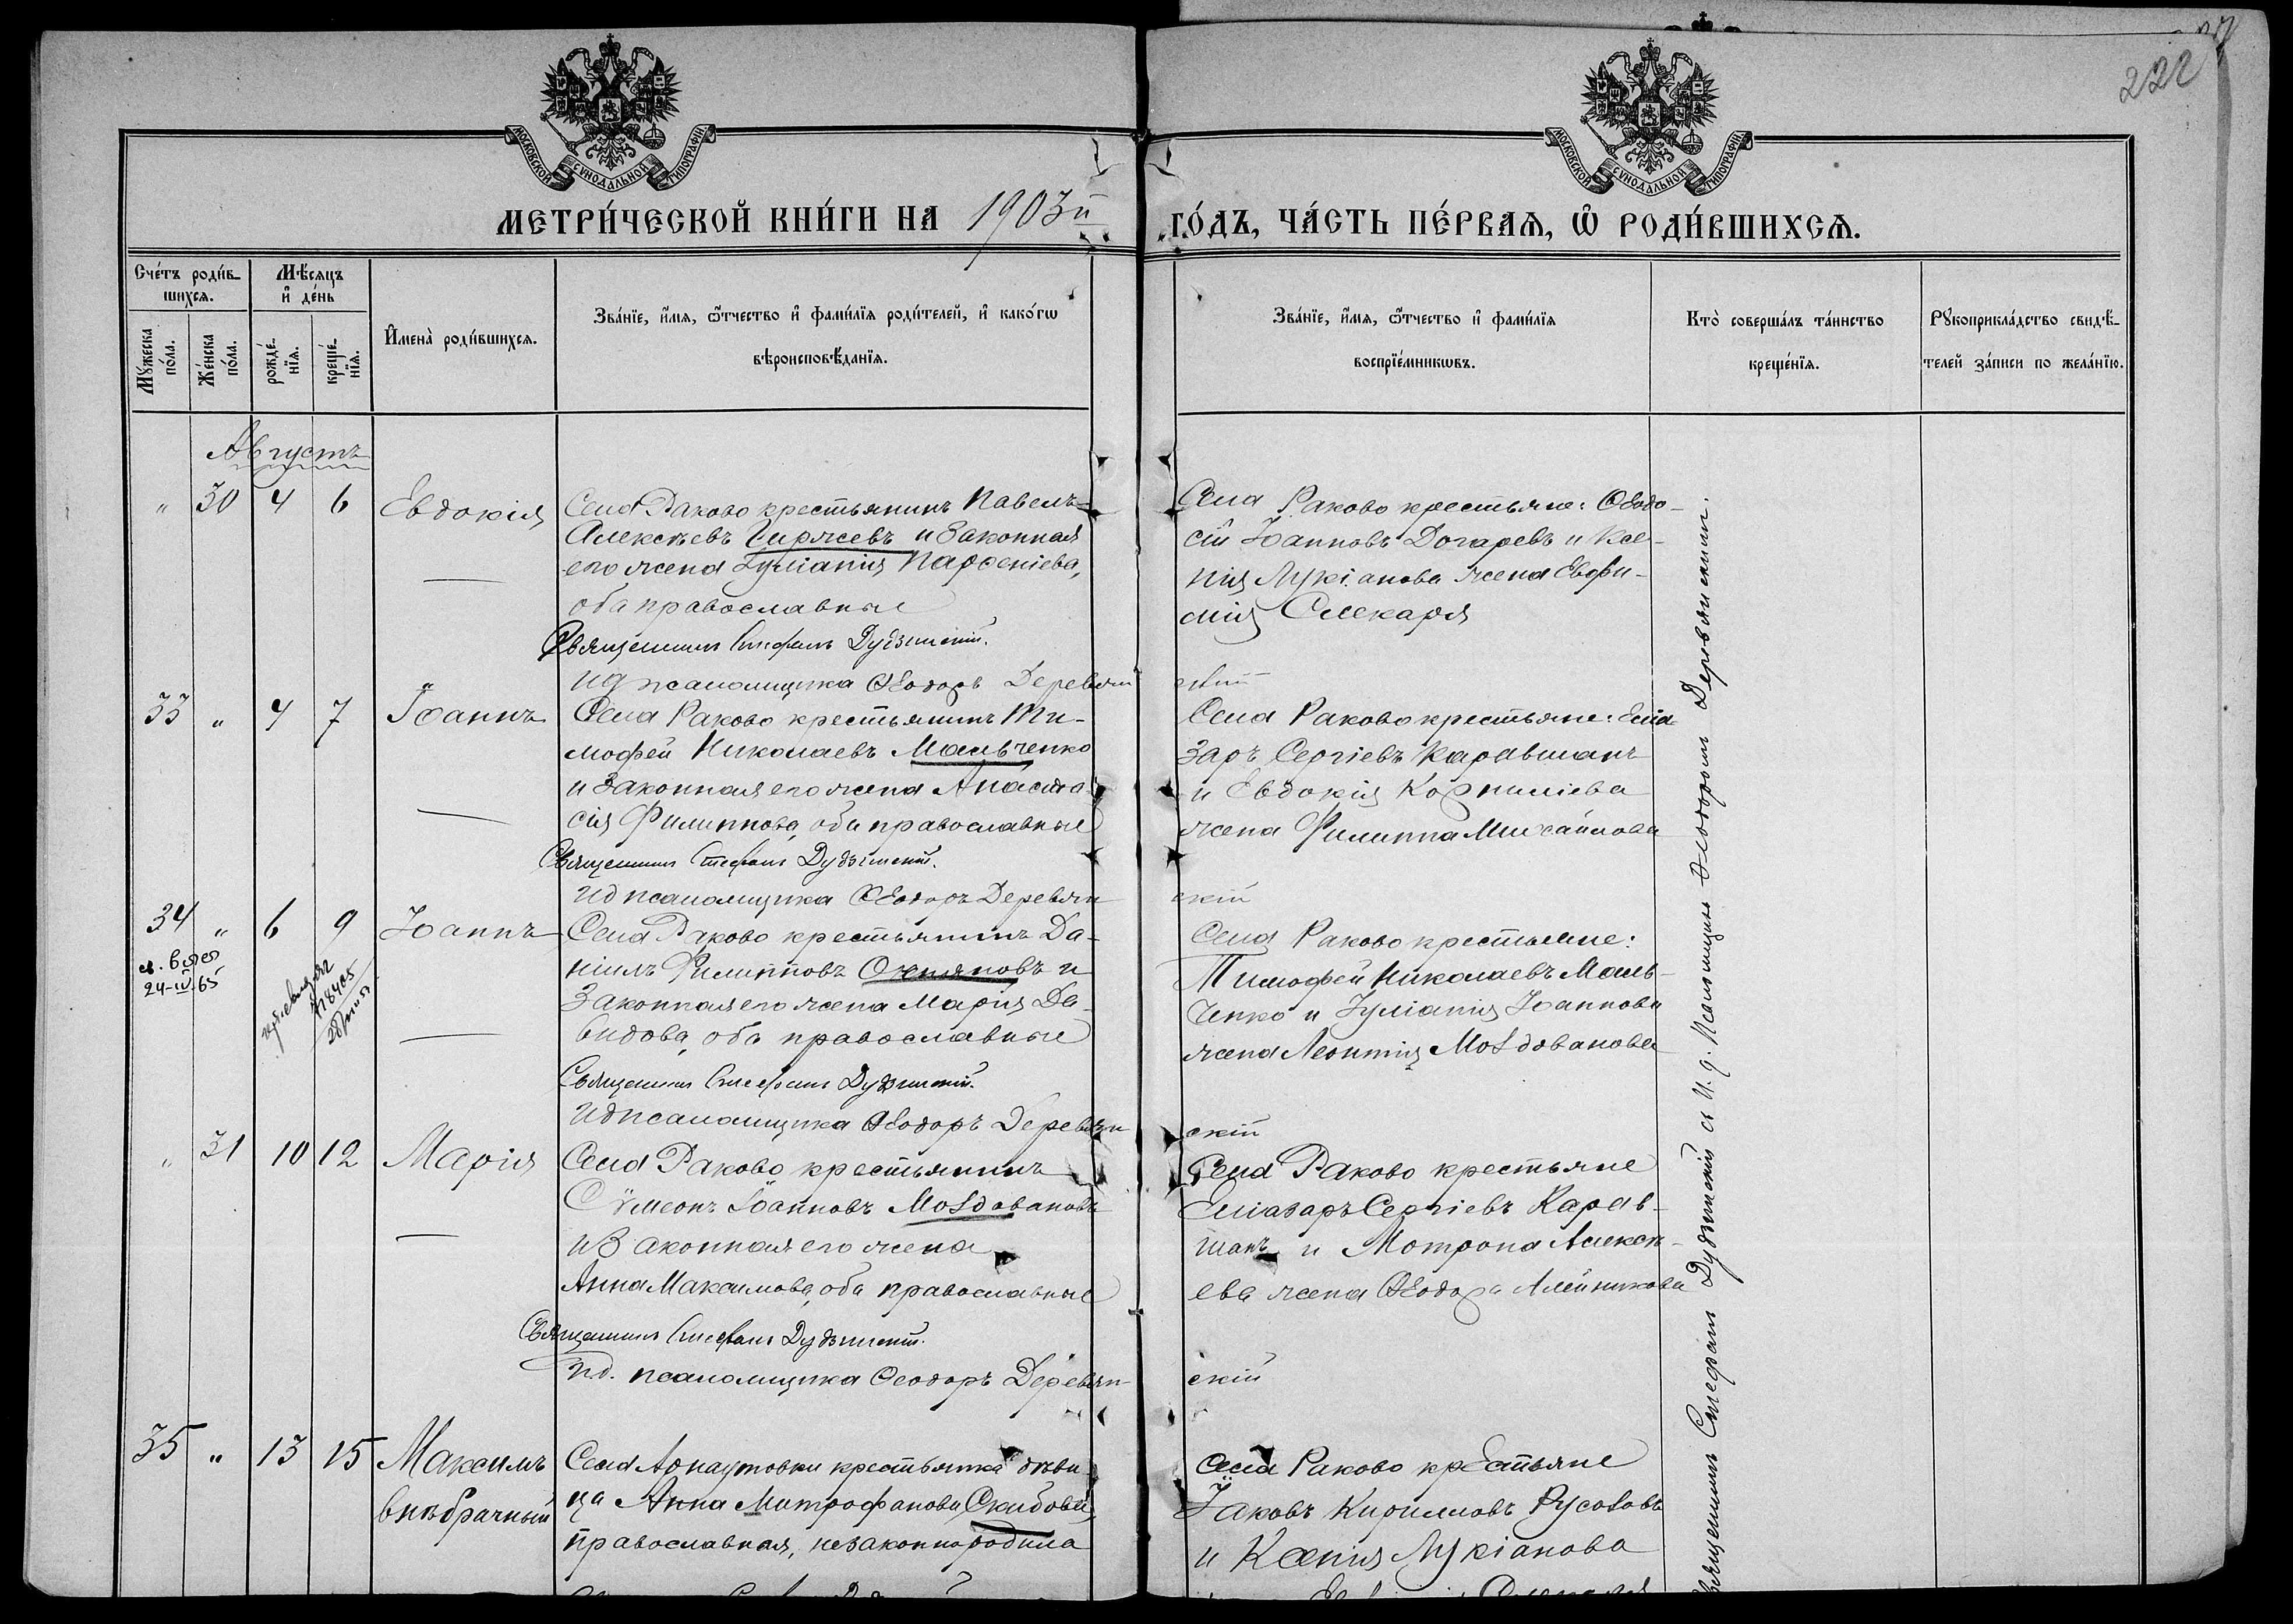 222
МОСКОВСКОЙ СѴНОДАЛЬНОЙ ТИПОГРАФІИ
МОСКОВСКОЙ СѴНОДАЛЬНОЙ ТИПОГРАФІИ
МЕТРИ́ЧЕСКОЙ КНИ́ГИ НА 1903й ГО́ДЪ, ЧА́СТЬ ПЕ́РВАѦ, Ѡ РОДИ́ВШИХСѦ.
Сче́тъ роди́в-
шихсѧ.
Мꙋ́жеска по́ла.
Же́нска по́ла.
Мѣ́сѧцъ
и҆ де́нь
рожде́-
нїѧ.
креще́-
нїѧ.
И҆мена̀ роди́вшихсѧ.
Зва́нїе, и҆́мѧ, ѻ҆́тчество и҆ фами́лїѧ роди́телей, и҆ како́гѡ
вѣроисповѣ́данїѧ.
Зва́нїе, и҆́мѧ, ѻ҆́тчество и҆ фами́лїѧ
воспрїе́мникѡвъ.
Кто̀ соверша́лъ та́инство
креще́нїѧ.
Рꙋкоприкла́дство свидѣ́-
телей за́писи по жела́нїю.
Августъ
" 30 4 6 Евдокія
Села Раково крестьянинъ Павелъ
Алексѣевъ Гиржевъ и законная
его жена Іуліанія Парѳеніева,
оба православные
Священникъ Стефанъ Дудзинскій.
ИД псаломщика Ѳеодоръ Деревянскій
Села Раково крестьяне: Ѳеодо-
сій Іоанновъ Догаревъ и Ксе-
нія Лукіанова жена Евфи-
мія Слекаря
33 " 4 7 Іоаннъ
Села Раково крестьянинъ Ти-
мофей Николаевъ Мальченко
и законная его жена Анаста-
сія Филиппова, оба православные
Священникъ Стефанъ Дудзинскій.
ИД псаломщика Ѳеодоръ Деревянскій
Села Раково крестьяне: Елиа
заръ Сергіевъ Каравшанъ
и Евдокія Корниліева
жена Филиппа Михайлова
34 " 6 9 Іоаннъ
24-IV.65
Села Раково крестьянинъ Да-
ніилъ Филипповъ Окняновъ и
Законная его жена Марія Да-
видова, оба православные
Священникъ Стефанъ Дудзинскій.
ИД псаломщика Ѳеодоръ Деревянскій
Села Раково крестьяне:
Тимофей Николаевъ Маль-
ченко и Іуліанія Іоаннова
жена Леонтія Молдованова
" 31 10 12 Марія
Села Раково крестьянинъ
Сѵмеонъ Іоанновъ Молдовановъ
и законная его жена
Анна Максимова, оба православные
Священникъ Стефанъ Дудзинскій.
И.д. псаломщика Ѳеодоръ Деревянскій
Села Раково крестьяне
Елиазаръ Сергіевъ Карав-
шанъ и Мотрона Алексѣ-
ева жена Ѳеодора Алейникова
35 " 13 15 Максимъ
внѣбрачный
Села Арнаутовки крестьянка дѣви-
ца Анна Митрофанова Скибова,
православная, незаконнородила
Села Раково крестьяне
Іаковъ Кирилловъ Русоловъ
и Ксенія Лукіанова
Священникъ Стефанъ Дудзинскій съ И. д. Псаломщика Ѳеодоромъ Деревянскимъ.